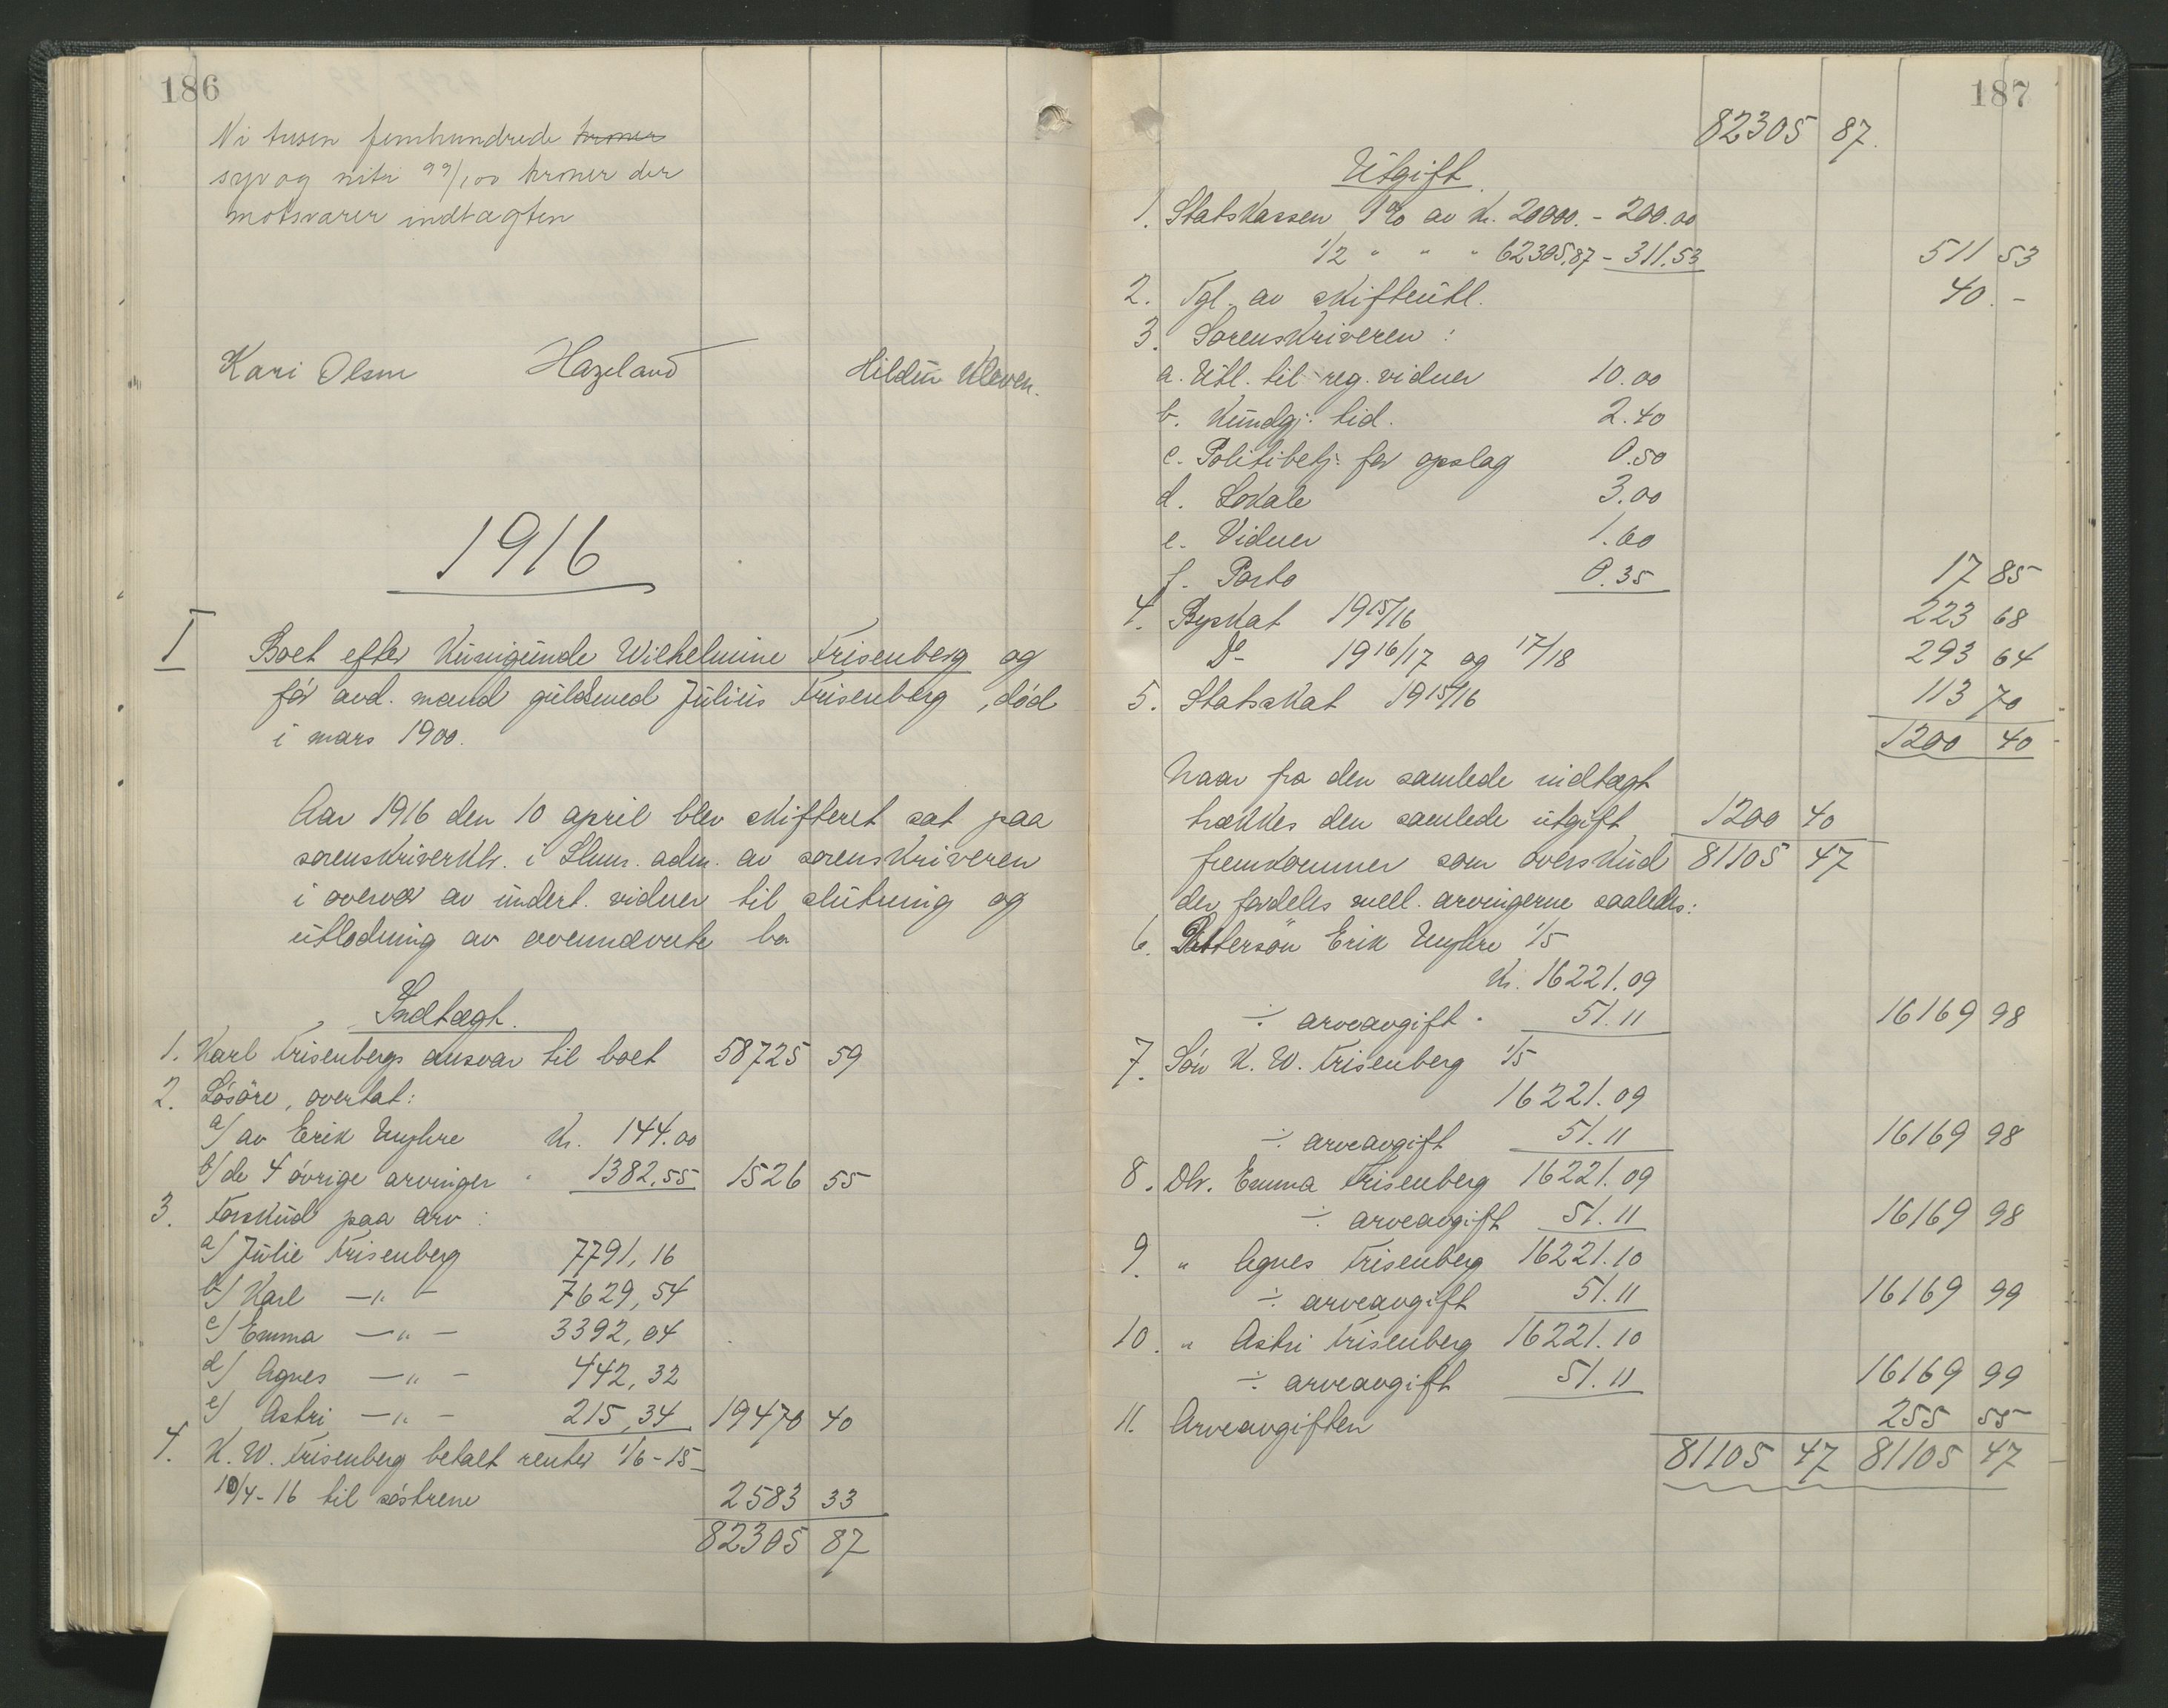 186
Ni tusen femhundrede kroner
syv og nitti 99/100 kroner der
motsvarer indtægten
Kari Olsen Hazeland Hildur Kleven.
1916
I Boet efter Kunigunde Wilhelmine Frisenberg og
før avd. mand guldsmed Julius Frisenberg, død
i mars 1900.
Aar 1916 den 10 april blev skifteret sat paa
sorenskriverktr. i Lhmr. adm. av sorenskriveren
i overvær av undert. vidner til slutning og
utlodning av ovennævnte bo
Indtægt.
1. Karl Frisenbergs ansvar til boet 58725 59
2. Løsøre, overtat:
a/ av Erik Kr. 144.00
b/ de 4 øvrige arvinger " 1382.55 1526 55
3. Forskud paa arv:
a/ Julie Frisenberg 7791,16
b/ Karl —"— 7629,54
c/ Emma —"— 3392,04
d/ Agnes —"— 442,32
e/ Astri —"— 215,34 19470 40
4. K. W. Frisenberg betalt renter 1/6-15-
10/4-16 til søstrene 2583 33
82305 87
187
82305 87.
Utgift.
1. Statskassen 1% av Kr. 20000.- 200.00
1/2 " " " 62305,87 - 311.53 511 53
2. Tgl. av skifteutl. 40.-
3. Sorenskriveren:
a. Utl. til reg. vidner 10.00
b. Kundgj. tid. 2.40
c. Politibetj. for opslag 0.50
d. Lokale 3.00
e. Vidner 1.60
f. Porto 0.35 17 85
4. Byskat 1915/16 223 68
Do 1916/17 og 17/18 293 64
5. Statsskat 1915/16 113 70
1200 40
Naar fra den samlede indtægt
trækkes den samlede utgift 1200 40
fremkommer som overskud 81105 47
der fordeles mell. arvingerne saaledes:
6. Dattersøn Erik 1/5
Kr. 16221.09
÷ arveavgift " 51.11 16169 98
7. Søn K. W. Frisenberg 1/5
16221.09
÷ arveavgift 51.11 16169 98
8. Dtr. Emma Frisenberg 16221.09
÷ arveavgift 51.11 16169 98
9. " Agnes Frisenberg 16221.10
÷ arveavgift 51.11 16169 99
10. " Astri Frisenberg 16221.10
÷ arveavgift 51.11 16169 99
11. Arveavgiften 255 55
81105 47 81105 47